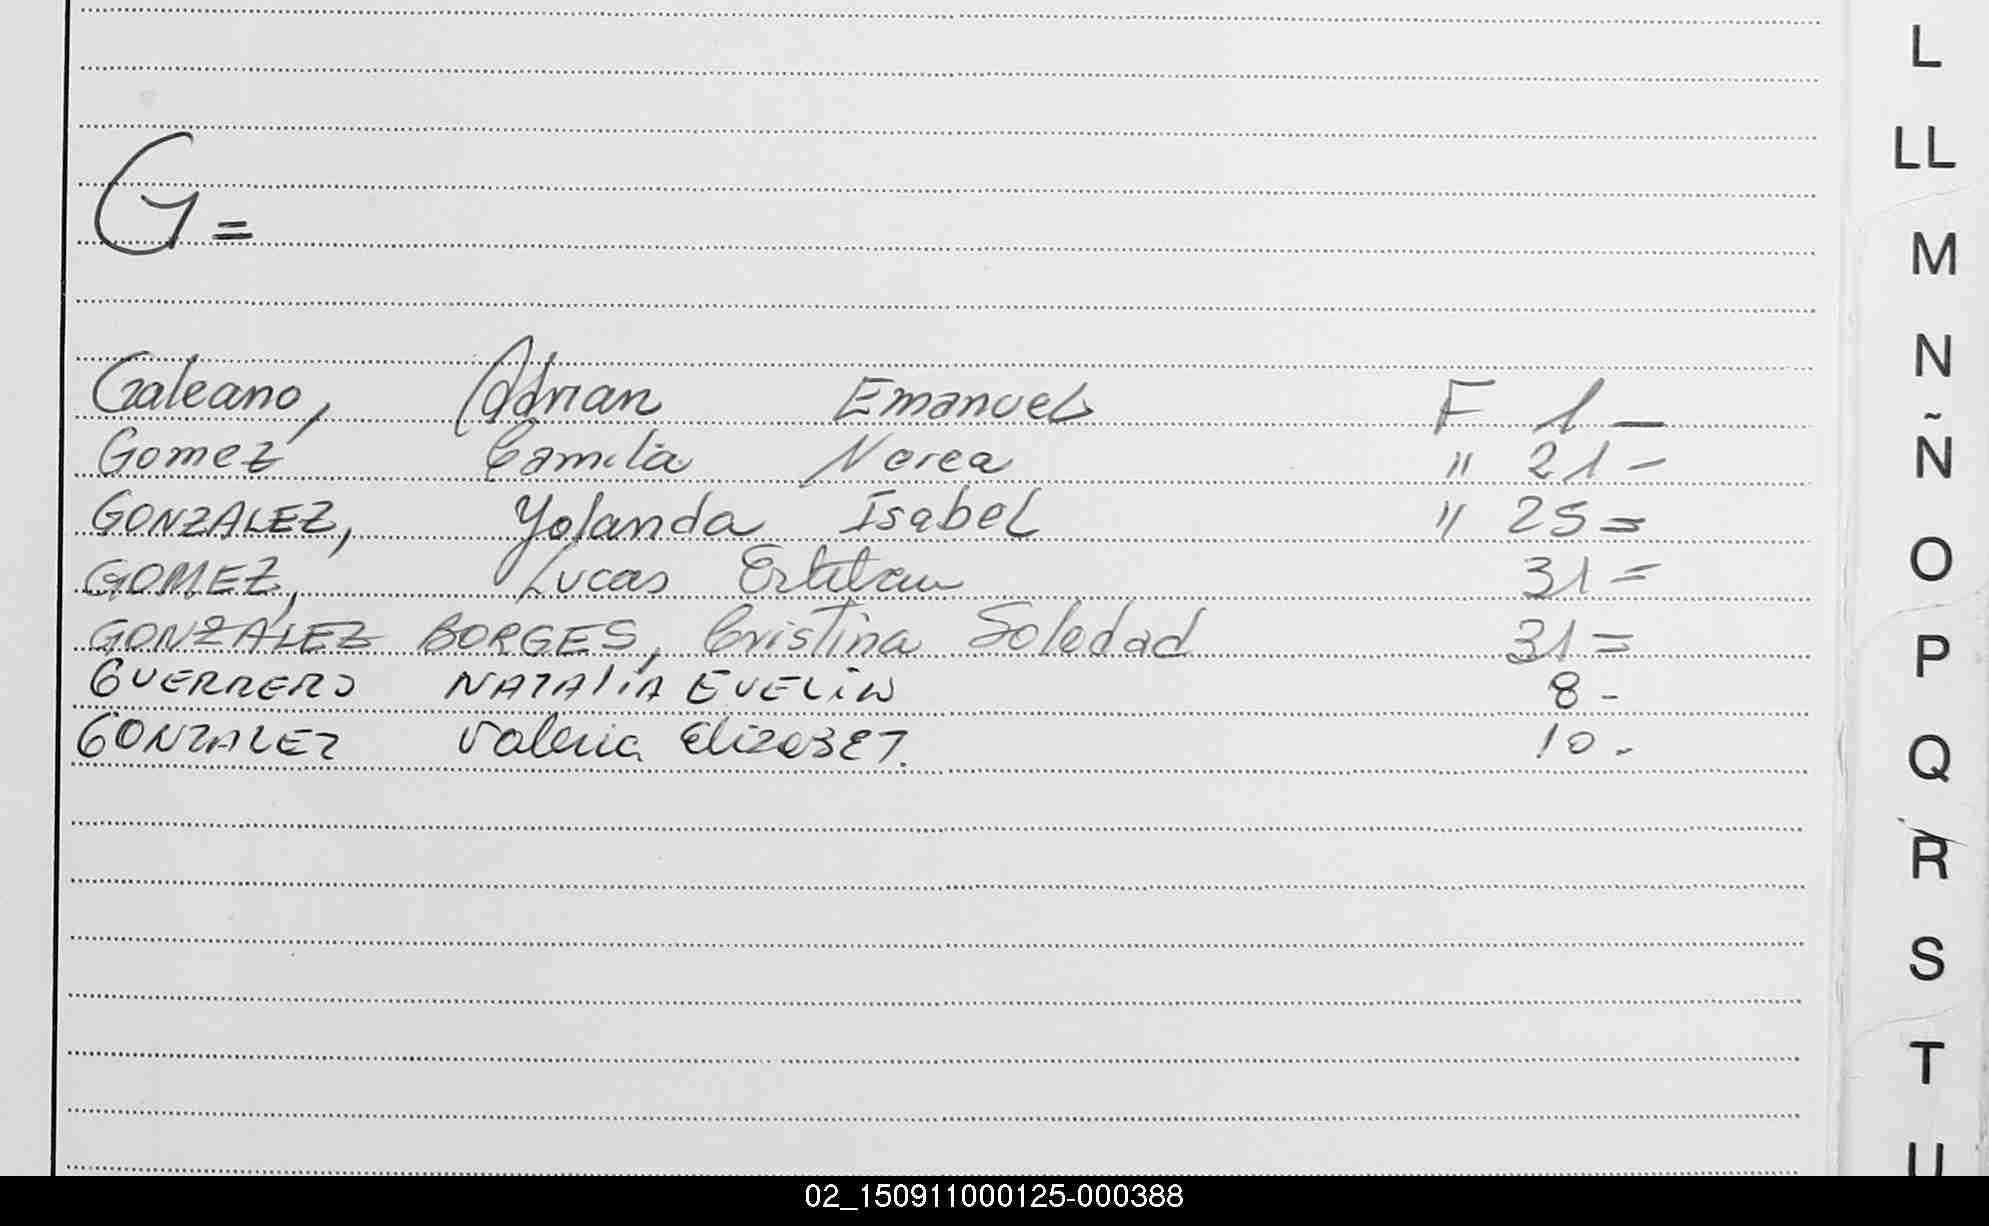 G=
Galeano, Adrian Emanuel F 1 —
Gomez Camila Nerea " 21 -
GONZALEZ, Yolanda Isabel " 25 =
GOMEZ, Lucas Esteban 31 =
GONZALEZ BORGES, Cristina Soledad 31 =
GUERRERO NATALIA EVELIN 8 -
GONZALEZ Valeria ElizaBET. 10 -
L
LL
M
N
Ñ
O
P
Q
R
S
T
U
02_150911000125-000388